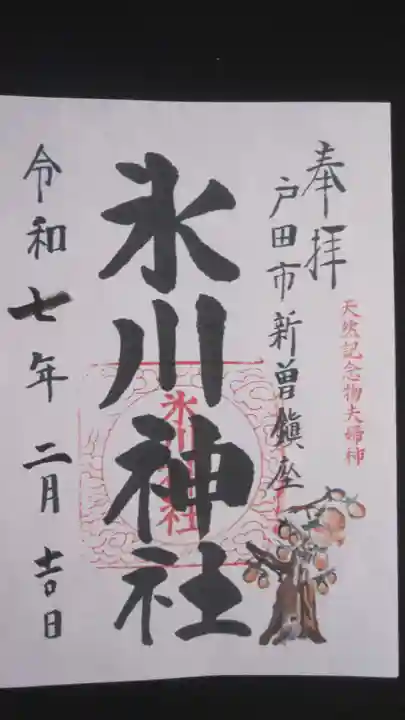 奉拝
戸田市新曽鎮座
天然記念物夫婦柿
氷川神社
氷川神社
令和七年二月吉日